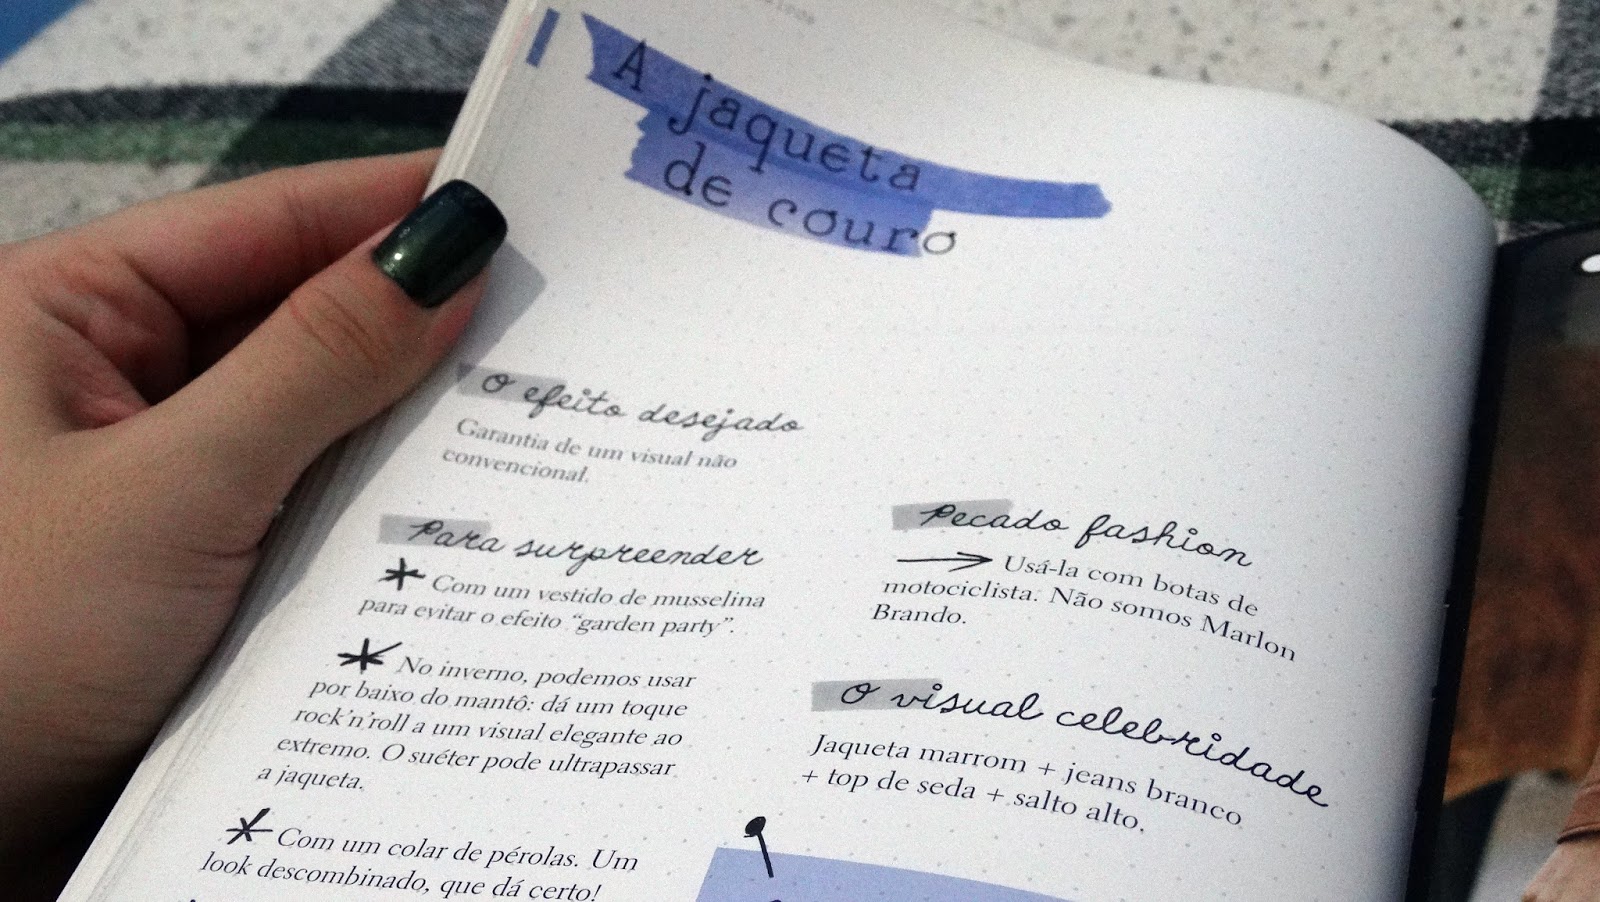 A jaqueta
de couro
O efeito desejado
Garantia de um visual não
convencional.
Para surpreender
Com um vestido de musselina
para evitar o efeito “garden party”.
No inverno, podemos usar
por baixo do mantô: dá um toque
rock’n’roll a um visual elegante ao
extremo. O suéter pode ultrapassar
a jaqueta.
Com um colar de pérolas. Um
look descombinado, que dá certo!
Pecado fashion
Usá-la com botas de
motociclista. Não somos Marlon
Brando.
O visual celebridade
Jaqueta marrom + jeans branco
+ top de seda + salto alto.